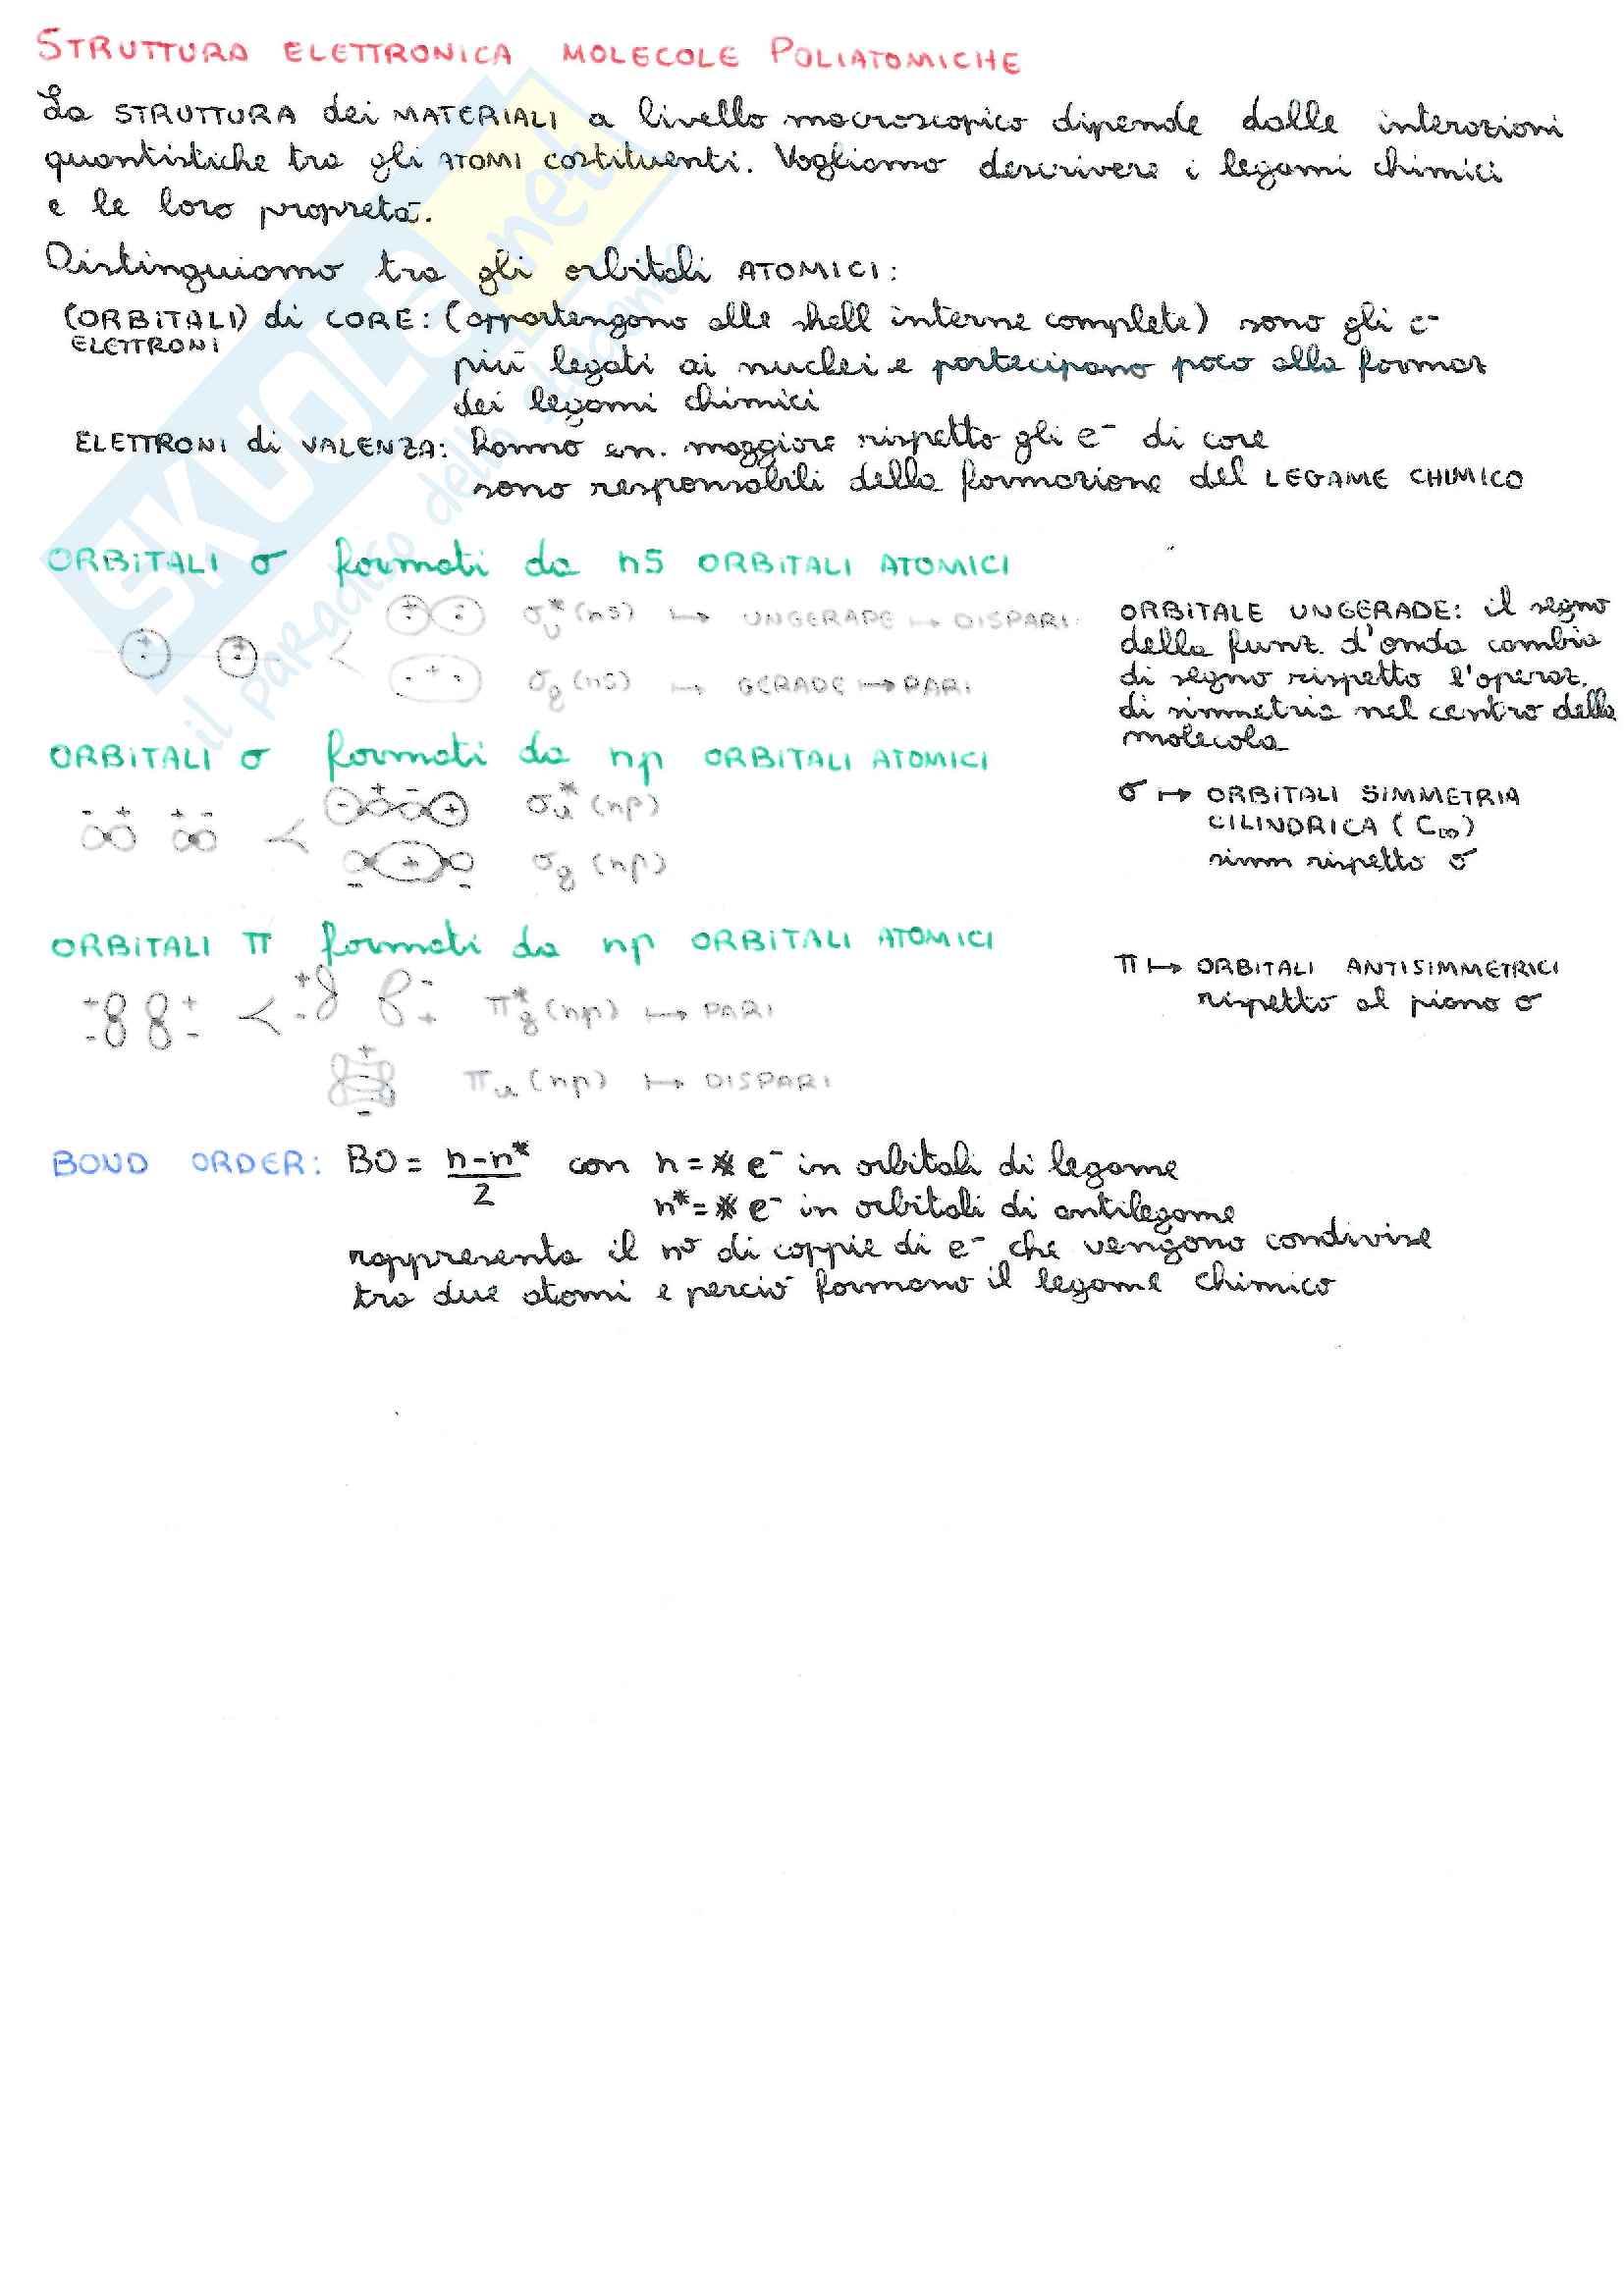 STRUTTURA ELETTRONICA MOLECOLE POLIATOMICHE
La STRUTTURA dei MATERIALI a livello macroscopico dipende dalle interazioni
quantistiche tra gli ATOMI costituenti. Vogliamo descrivere i legami chimici
e le loro proprietà.
Distinguiamo tra gli orbitali ATOMICI:
(ORBITALI) di CORE: (appartengono alle shell interne complete) sono gli e⁻
ELETTRONI
più legati ai nuclei e partecipano poco alla formaz
dei legami chimici
ELETTRONI di VALENZA: hanno en. maggiore rispetto gli e⁻ di core
sono responsabili della formazione del LEGAME CHIMICO
ORBITALI σ formati da nS ORBITALI ATOMICI
+ + + - σu*(ns) ↦ UNGERADE ↦ DISPARI
+ σg(ns) ↦ GERADE ↦ PARI
ORBITALE UNGERADE: il segno
della funz. d'onda cambia
di segno rispetto l'operaz.
di simmetria nel centro della
molecola
ORBITALI σ formati da np ORBITALI ATOMICI
- + + - - + - + σu*(np)
+ - - σg(np)
σ ↦ ORBITALI SIMMETRIA
CILINDRICA (C∞)
simm rispetto σ
ORBITALI π formati da np ORBITALI ATOMICI
+ - + - + - - + πg*(np) ↦ PARI
+ - πu(np) ↦ DISPARI
π ↦ ORBITALI ANTISIMMETRICI
rispetto al piano σ
BOND ORDER: BO = n-n*/2 con n = # e⁻ in orbitali di legame
n* = # e⁻ in orbitali di antilegame
rappresenta il n° di coppie di e⁻ che vengono condivise
tra due atomi e perciò formano il legame chimico
SKUOLA.net
il paradiso dello studente